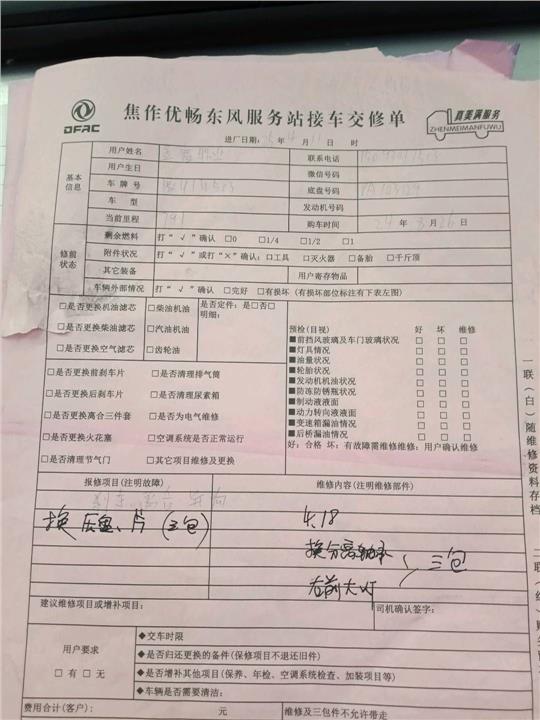 DFAC
焦作优畅东风服务站接车交修单
真美满服务
ZHENMEIMANFUWU
进厂日期: 年 月 日 时
基本信息
用户姓名 联系电话
用户生日 微信号码
车牌号 底盘号码
车 型 发动机号码
当前里程 购车时间 24 年 月 日
修前状态
剩余燃料 打“√”确认 □0 □1/4 □1/2 □1
附件状况 打“√”或打“×”确认: □工具 □灭火器 □备胎 □千斤顶
其它装备 用户寄存物品
车辆外部情况 打“√”确认 □完好 □有损坏 (有损坏部位标注有下表左图)
□是否更换机油滤芯 □柴油机油 是否定件: 是□否□
明细:
□是否更换柴油滤芯 □汽油机油
□是否更换空气滤芯 □齿轮油
预检(目视) 好 坏 维修
■前挡风玻璃及车门玻璃状况 □ □ □
■灯具情况 □ □ □
■油量状况 □ □ □
■轮胎状况 □ □ □
■发动机机油状况 □ □ □
■防冻防锈瓶状况 □ □ □
■制动液液面 □ □ □
■动力转向液液面 □ □ □
■变速箱漏油情况 □ □ □
■后桥漏油情况 □ □ □
好: 合格 坏: 有故障需维修维修: 用户确认维修
□是否更换前刹车片 □是否清理排气筒
□是否更换后刹车片 □是否清理尿素箱
□是否更换离合三件套 □是否为电气维修
□是否更换火花塞 □空调系统是否正常运行
□是否清理节气门 □其它项目维修及更换
报修项目(注明故障) 维修内容(注明维修部件)
换 压盘、片 (三包) 4.18
换分离轴承
右前大灯
三包
建议维修项目或增补项目: 司机确认签字:
用户要求
□有 □无
◆交车时限
◆是否归还更换的备件(保修项目不退还旧件)
◆是否增补其他项目(保养、年检、空调系统检查、加装项目等)
◆车辆是否需要清洁:
费用合计(客户): 元 维修及三包件不允许带走
一联(白)随维修资料存档